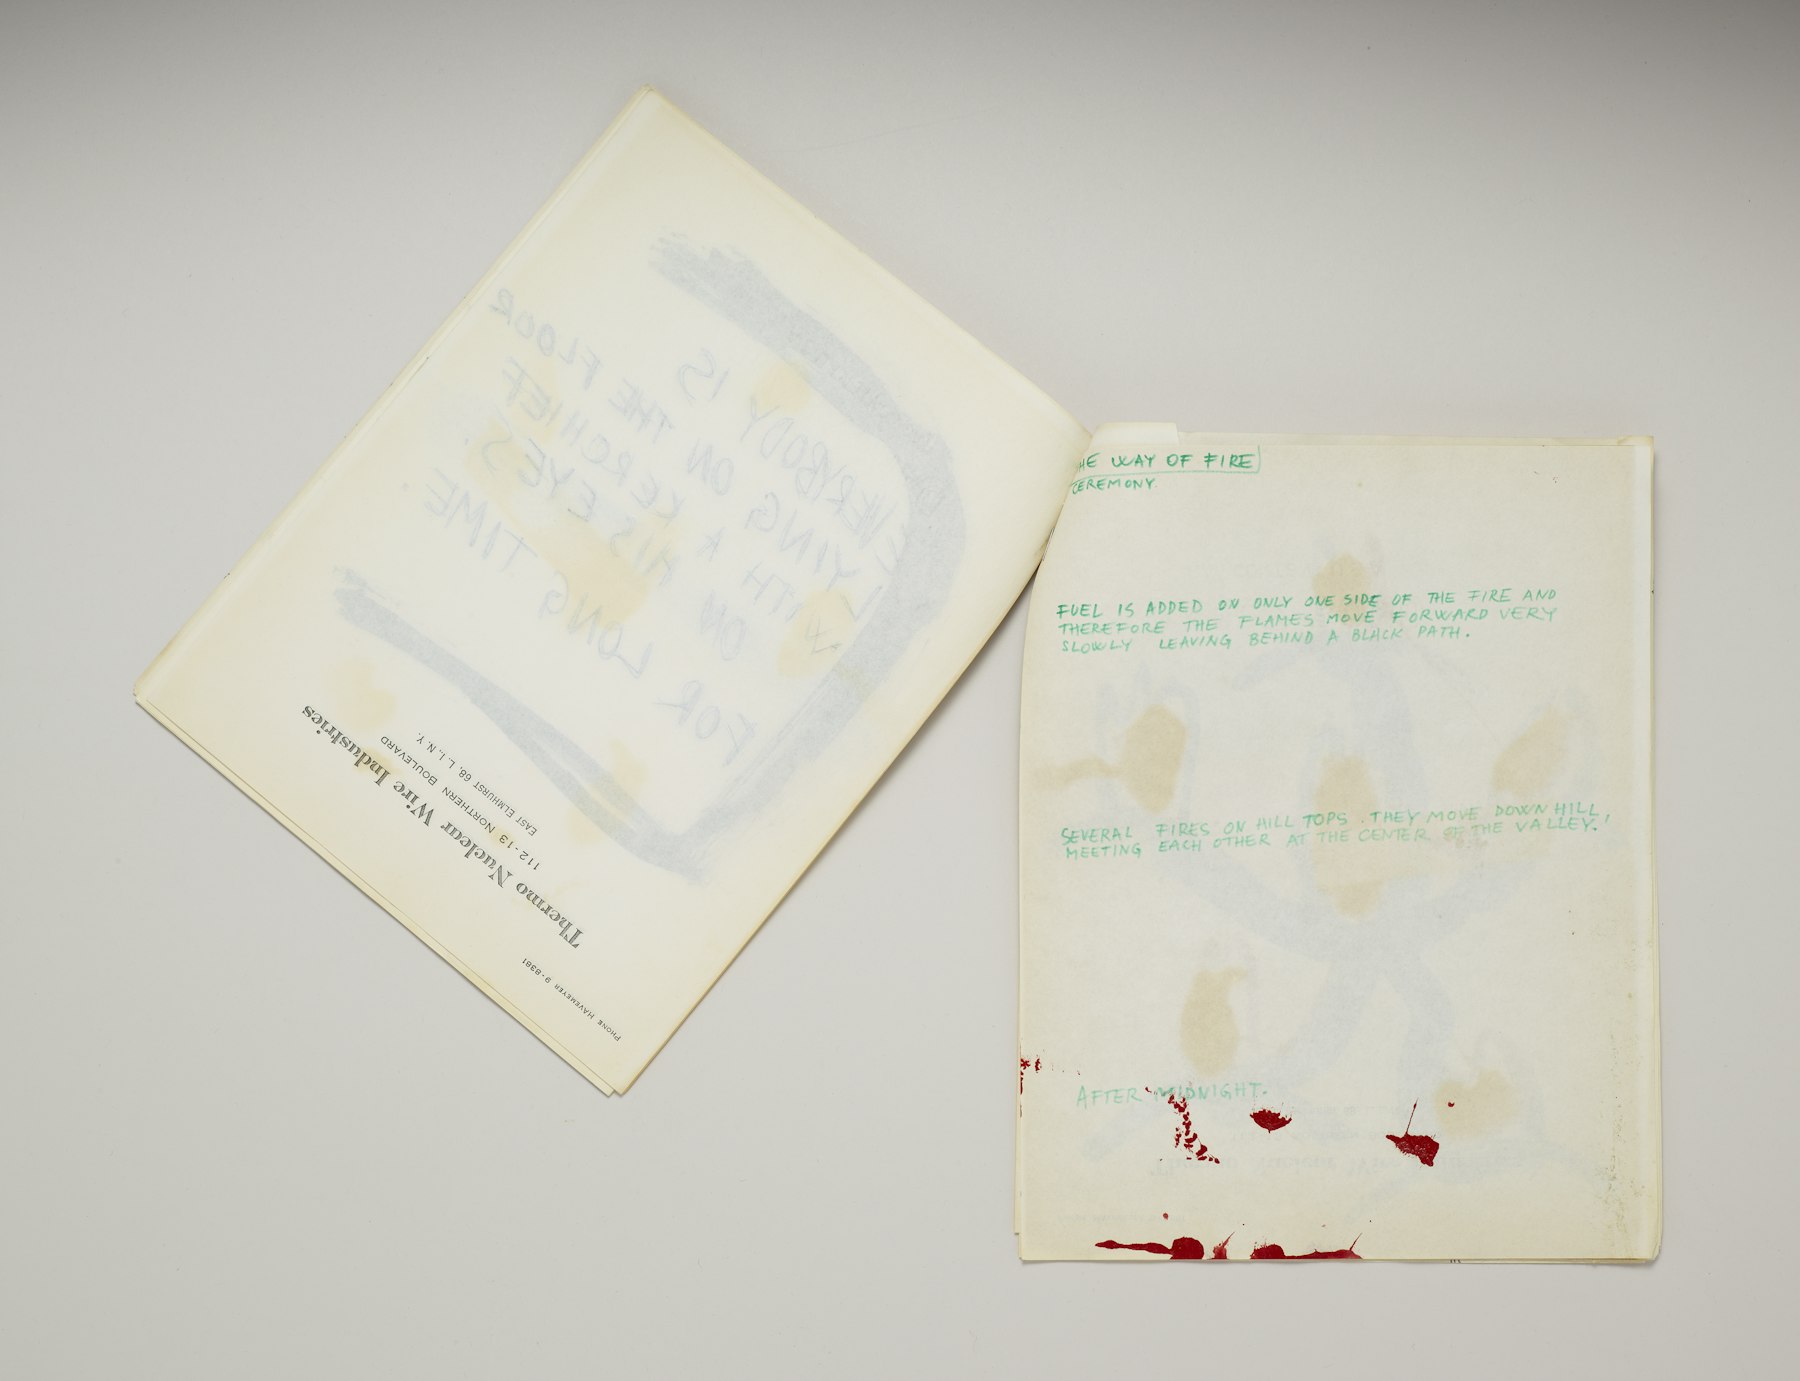 VERYBODY IS
LYING ON THE FLOUR
WITH A KERCHIEF
ON HIS EYES.
FOR LONG TIME.
Phone HAvemeyer 9-8381
Thermo Nuclear Wire Industries
112-13 NORTHERN BOULEVARD
EAST ELMHURST 68, L. I., N. Y.
HE WAY OF FIRE
CEREMONY.
FUEL IS ADDED ON ONLY ONE SIDE OF THE FIRE AND
THEREFORE THE FLAMES MOVE FORWARD VERY
SLOWLY LEAVING BEHIND A BLACK PATH.
SEVERAL FIRES ON HILL TOPS. THEY MOVE DOWN HILL,
MEETING EACH OTHER AT THE CENTER OF THE VALLEY.
AFTER MIDNIGHT.